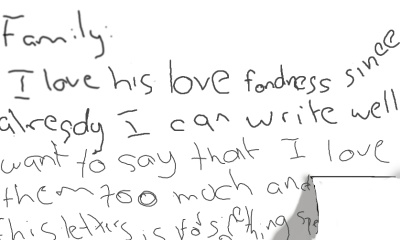 Family:
I love his love fondness since
already I can write well
want to say that I love
them too much and
this letters is